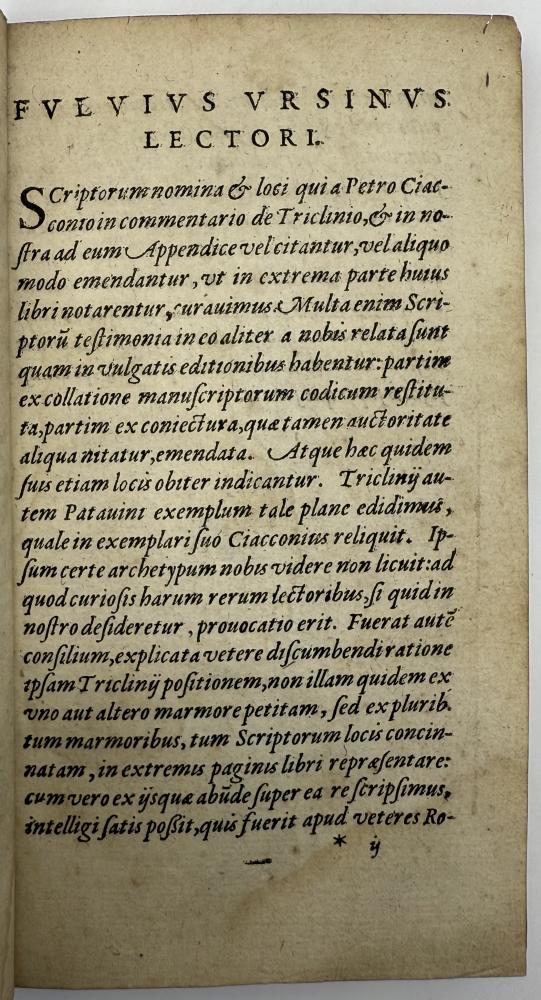 FVLVIVS VRSINVS
LECTORI.
SCriptorum nomina & loci qui a Petro Ciac-
conio in commentario de Triclinio, & in no-
ſtra ad eum Appendice vel citantur, vel aliquo
modo emendantur, vt in extrema parte huius
libri notarentur, curauimus. Multa enim Scri-
ptorū teſtimonia in eo aliter a nobis relata ſunt
quam in vulgatis editionibus habentur: partim
ex collatione manuſcriptorum codicum reſtitu-
ta, partim ex coniectura, quæ tamen auctoritate
aliqua nitatur, emendata. Atque hæc quidem
ſuis etiam locis obiter indicantur. Triclinij au-
tem Patauini exemplum tale plane edidimus,
quale in exemplari ſuo Ciacconius reliquit. Ip-
ſum certe archetypum nobis videre non licuit: ad
quod curioſis harum rerum lectoribus, ſi quid in
noſtro deſideretur, prouocatio erit. Fuerat autē
conſilium, explicata vetere diſcumbendi ratione
ipſam Triclinij poſitionem, non illam quidem ex
vno aut altero marmore petitam, ſed ex plurib.
tum marmoribus, tum Scriptorum locis concin-
natam, in extremis paginis libri repræſentare:
cum vero ex ijs quæ abūde ſuper ea re ſcripſimus,
intelligi ſatis poſſit, quis fuerit apud veteres Ro-
* ij